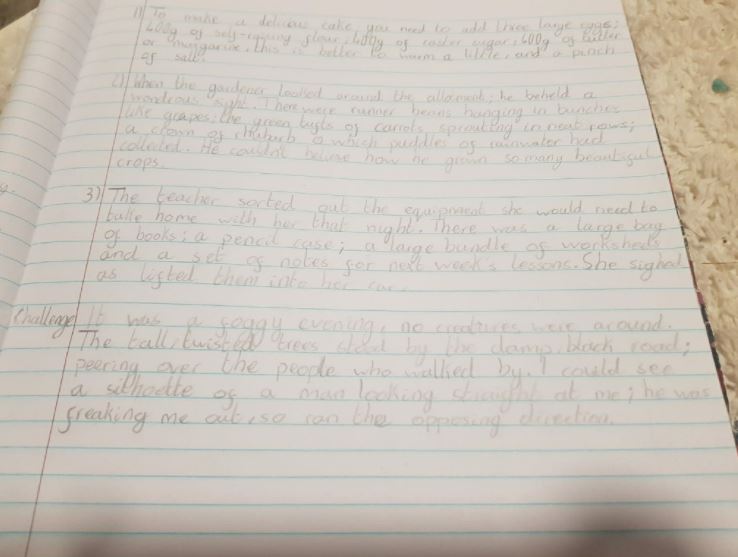 1) To make a delicous cake, you need to add three large eggs;
600g of self-raising flour; 600g of caster sugar; 600g of butter
or mungarine, this is better to warm a little, and a pinch
of salt.
2) When the gardener looked around the allotment; he beheld a
wonderous sight. There were runner beans hanging in bunches
like grapes; the green tufts of carrots sprouting in neat rows;
a clown of rhubarb which puddles of rainwater had
collected. He couldn't believe how he grown so many beautiful
crops.
3) The teacher sorted out the equipment she would need to
take home with her that night. There was a large bag
of books; a pencil case; a large bundle of worksheets
and a set of notes for next week's lessons. She sighed
as lifted them into her car.
Challenge It was a foggy evening, no creatures were around.
The tall, twisted trees stood by the damp, black road;
peering over the people who walked by. I could see
a silhoette of a man looking straight at me; he was
freaking me out, so ran the opposing direction.